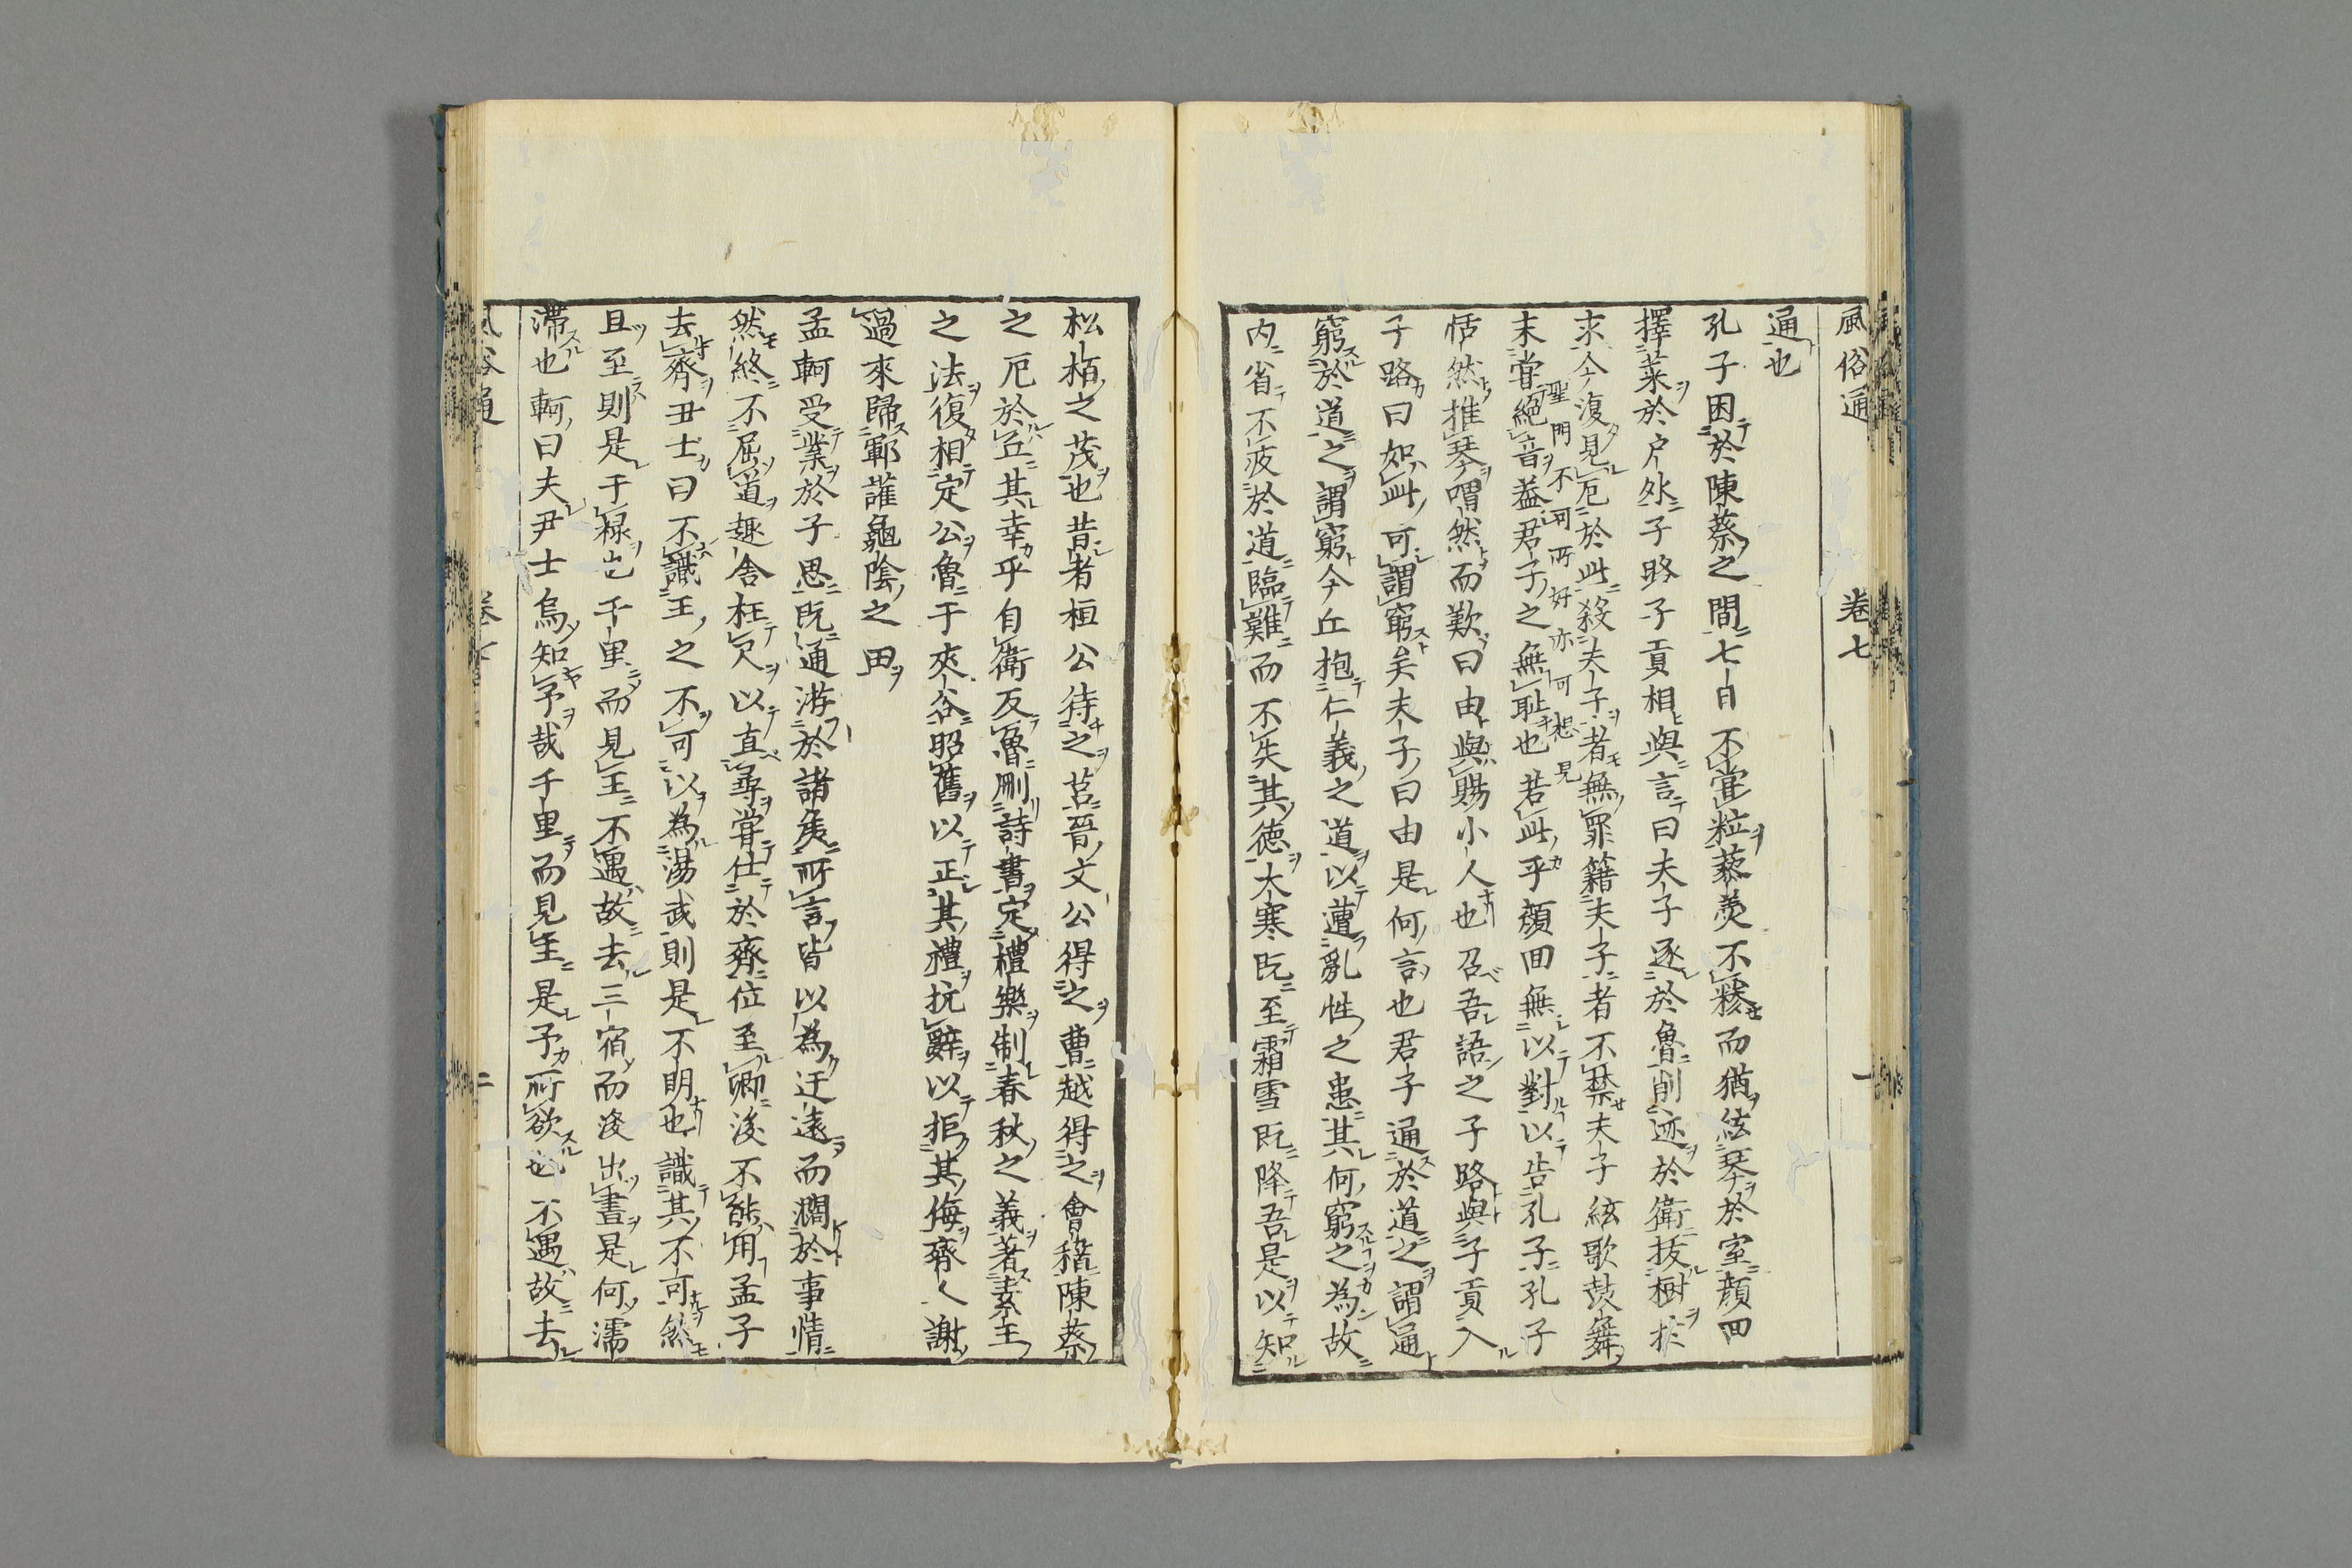 風俗通 卷七 一
通也
孔子困於陳蔡之間七日不嘗粒藜羹不糝而猶絃琴於室顔回
擇菜於户外子路子貢相與言曰夫子逐於魯削迹於衛抜樹於
求今復見厄於此殺夫子者無罪籍夫子者不禁夫子絃歌鼓舞
聖門不可所好亦可想見
末嘗絶音蓋君子之無耻也若此乎顔回無以對以告孔子孔子
恬然推琴喟然而歎曰由與賜小人也召吾語之子路與子貢入
子路曰如此可謂窮矣夫子曰由是何言也君子通於道之謂通
窮於道之謂窮今丘抱仁義之道以遭亂性之患其何窮之為故
内省不疚於道臨難而不失其德大寒既至霜雪既降吾是以知
松栢之茂也昔者桓公待之莒晉文公得之曹越得之會稽陳蔡
之厄於丘其幸乎自衛反魯刪詩書定禮樂制春秋之義著素王
之法復相定公魯于夾谷昭舊以正其禮抗辭以拒其侮齊人謝
過來歸鄆讙龜陰之田
孟軻受業於子思既通游於諸侯所言皆以為迂遠而濶於事情
然終不屈道趣舍枉尺以直尋嘗仕於齊位至卿後不能用孟子
去齊尹士曰不識王之不可以為湯武則是不明也識其不可然
且至則是干禄也千里而見王不遇故去三宿而後出晝是何濡
滯也軻曰夫尹士烏知予哉千里而見王是予所欲也不遇故去
風俗通 卷七 二